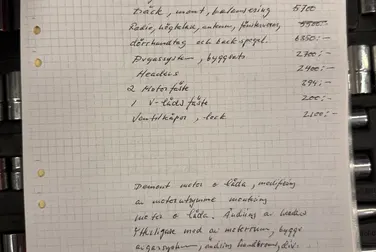 däck, mont, balansering 5700
Radio, högtalare, antenn, 5500
dörrhandtag och backspegel. 6350:-
Avgassystem, byggsats 2300:-
Headers 2400:-
2 Motorfäste 394:-
1 V-lådsfäste 200:-
Ventilkåpor, -lock 2100:-
Demont motor o låda, modifiering
av motorutrymme montering
motor o låda. Ändring av
Ytterligare mod av motorrum, bygge
avgassystem, ändring handbroms, div.